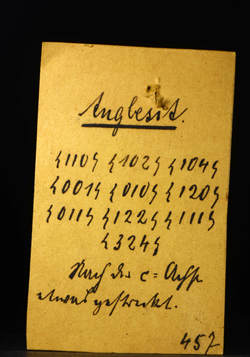 Anglesit.
{110} {102} {104}
{001} {010} {120}
{011} {122} {111}
{324}
Nach der c=Achse
etwas gestreckt.
457